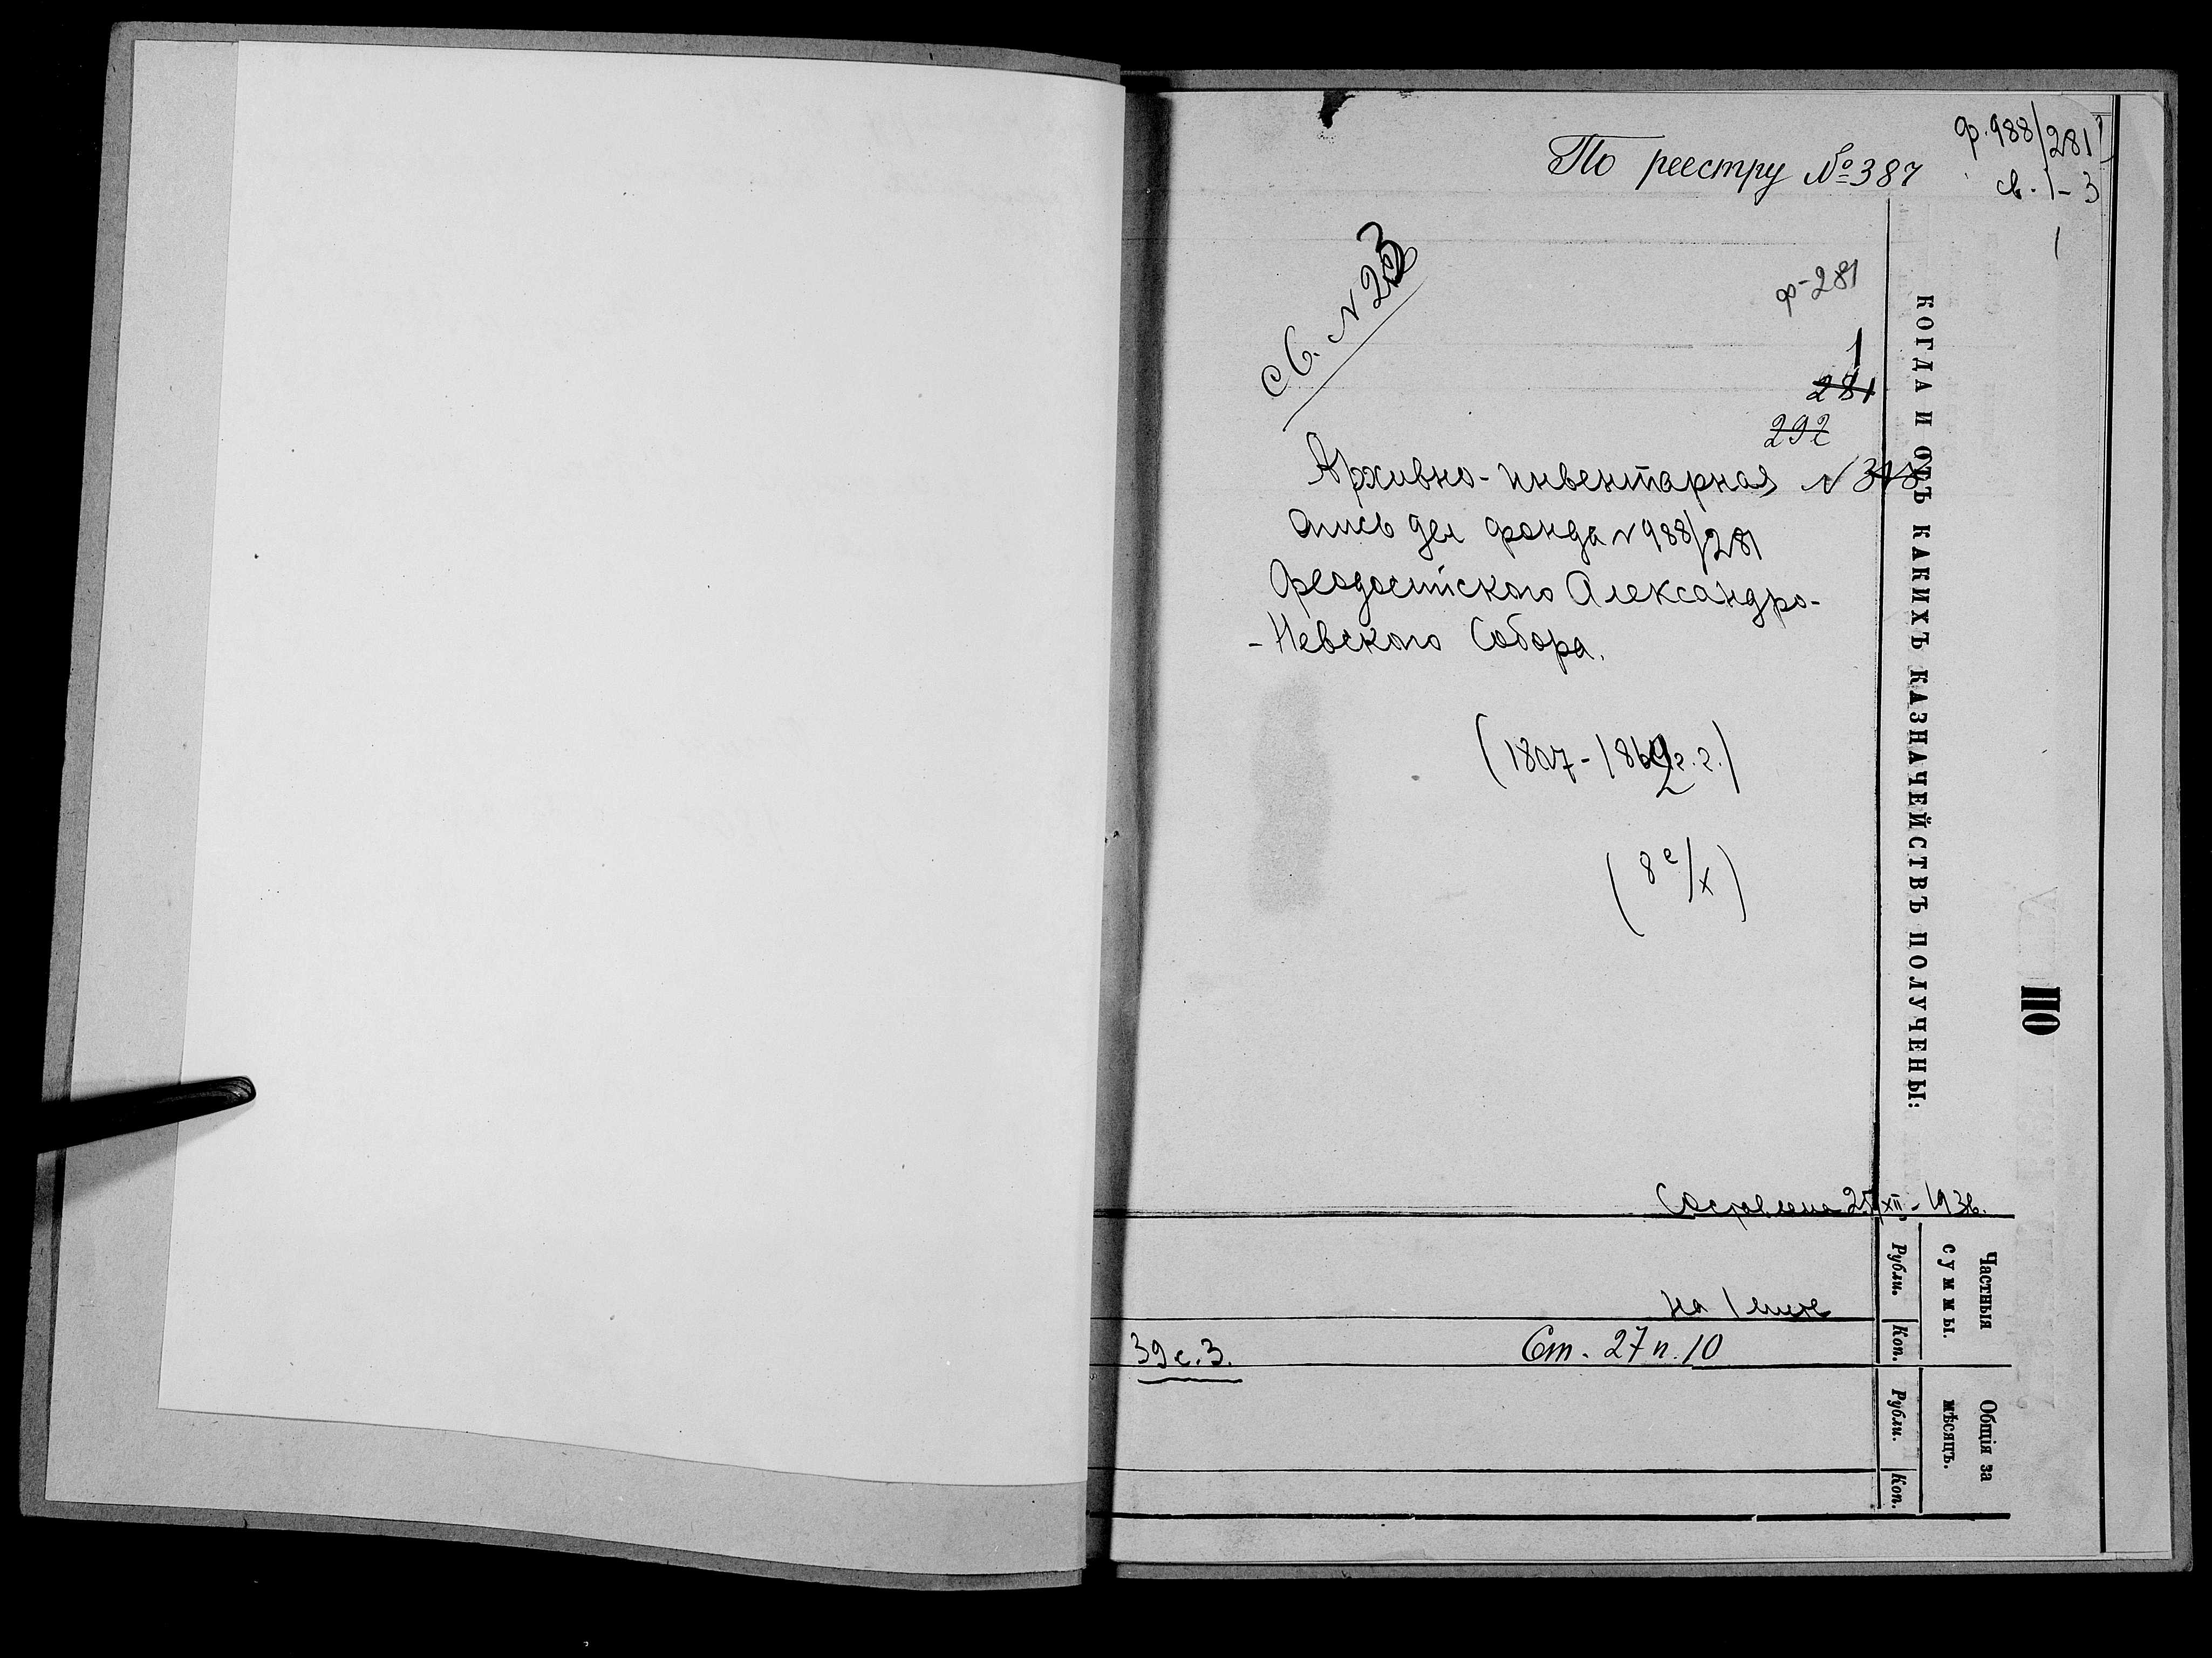 По реестру № 387
ф. 988/281
св. 1-3
1
св. N 23
ф-281
1
281
292
Архивно-инвентарная N 318
опись дел фонда N 988/281
Феодосийского Александро-
-Невского Собора.
(1807-1862 г.г.)
(8 е/х)
КОГДА И ОТЪ КАКИХЪ КАЗНАЧЕЙСТВЪ ПОЛУЧЕНЫ:
ПО
Составлена XII - 193
на 1 листе
39 с. 3.
Ст. 27 п. 10
Частныя
суммы.
Рубли. Коп.
Общія за
мѣсяцъ.
Рубли. Коп.